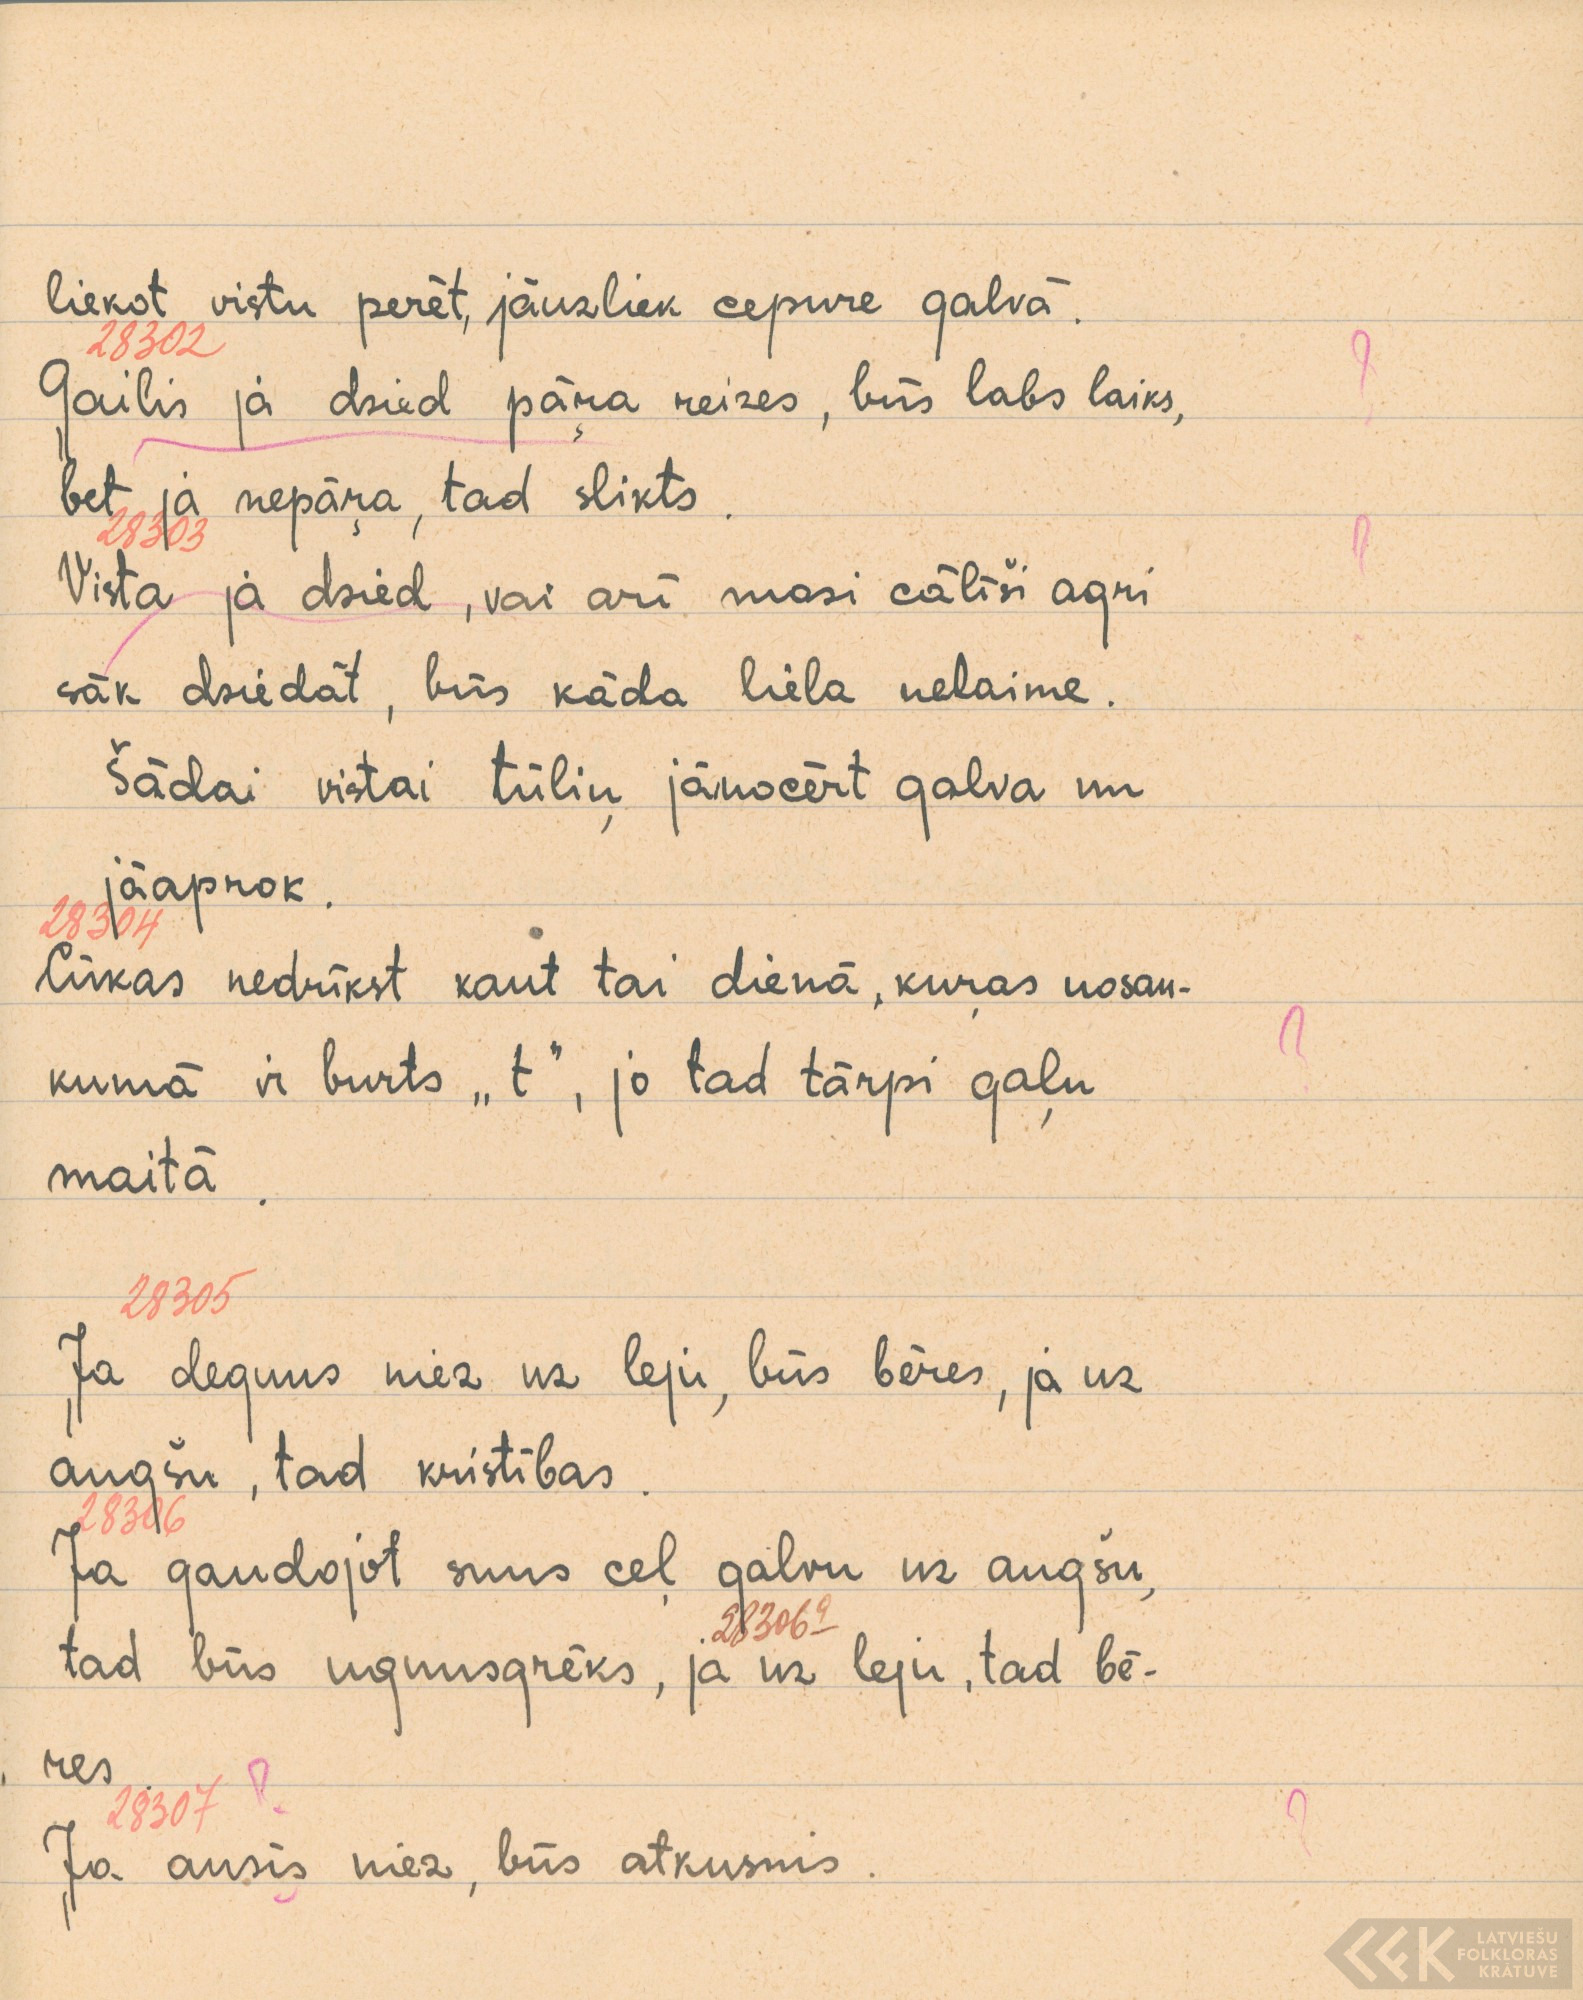 liekot vistu perēt, jāuzliek cepure galvā.
28302
Gailis ja dzied pāŗa reizes, būs labs laiks,
bet ja nepāŗa, tad slikts.
28303
Vista ja dzied, vai arī mazi cālīši agri
sāk dziedāt, būs kāda liela nelaime.
Šādai vistai tūliņ jānocērt galva un
jāaprok.
28304
Cūkas nedrīkst kaut tai dienā, kuŗas nosau-
kumā ir burts „t”, jo tad tārpi gaļu
maitā.
28305
Ja deguns niez uz leju, būs bēres, ja uz
augšu, tad kristības.
28306
Ja gaudojot suns ceļ galvu uz augšu,
28306a
tad būs ugunsgrēks, ja uz leju, tad bē-
res.
28307
Ja ausis niez, būs atkusnis.
LATVIEŠU
FOLKLORAS
KRĀTUVE